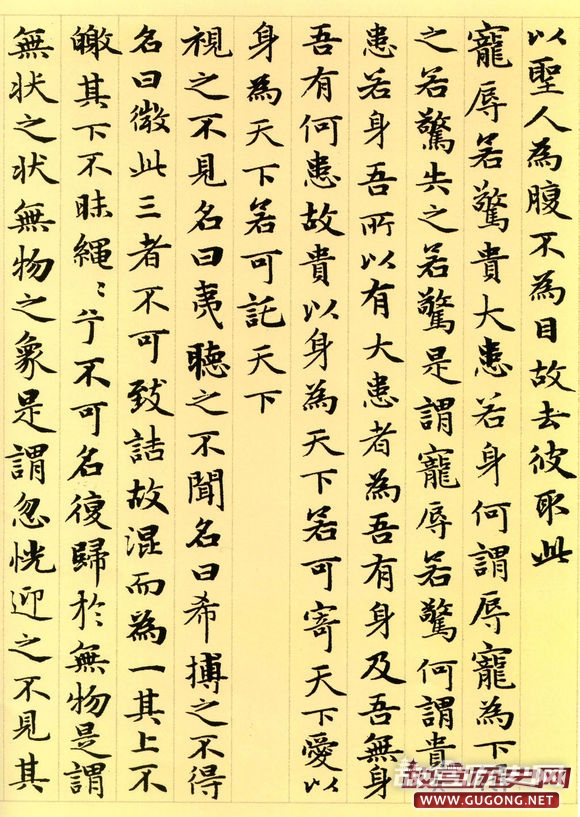 以聖人為腹不為目故去彼取此
寵辱若驚貴大患若身何謂辱寵為下
之若驚失之若驚是謂寵辱若驚何謂貴
患若身吾所以有大患者為吾有身及吾無身
吾有何患故貴以身為天下若可寄天下愛以
身為天下若可託天下
視之不見名曰夷聽之不聞名曰希搏之不得
名曰微此三者不可致詰故混而為一其上不
皦其下不昧繩〻兮不可名復歸於無物是謂
無状之状無物之象是謂忽恍迎之不見其
故宫历史网
WWW.GUGONG.NET